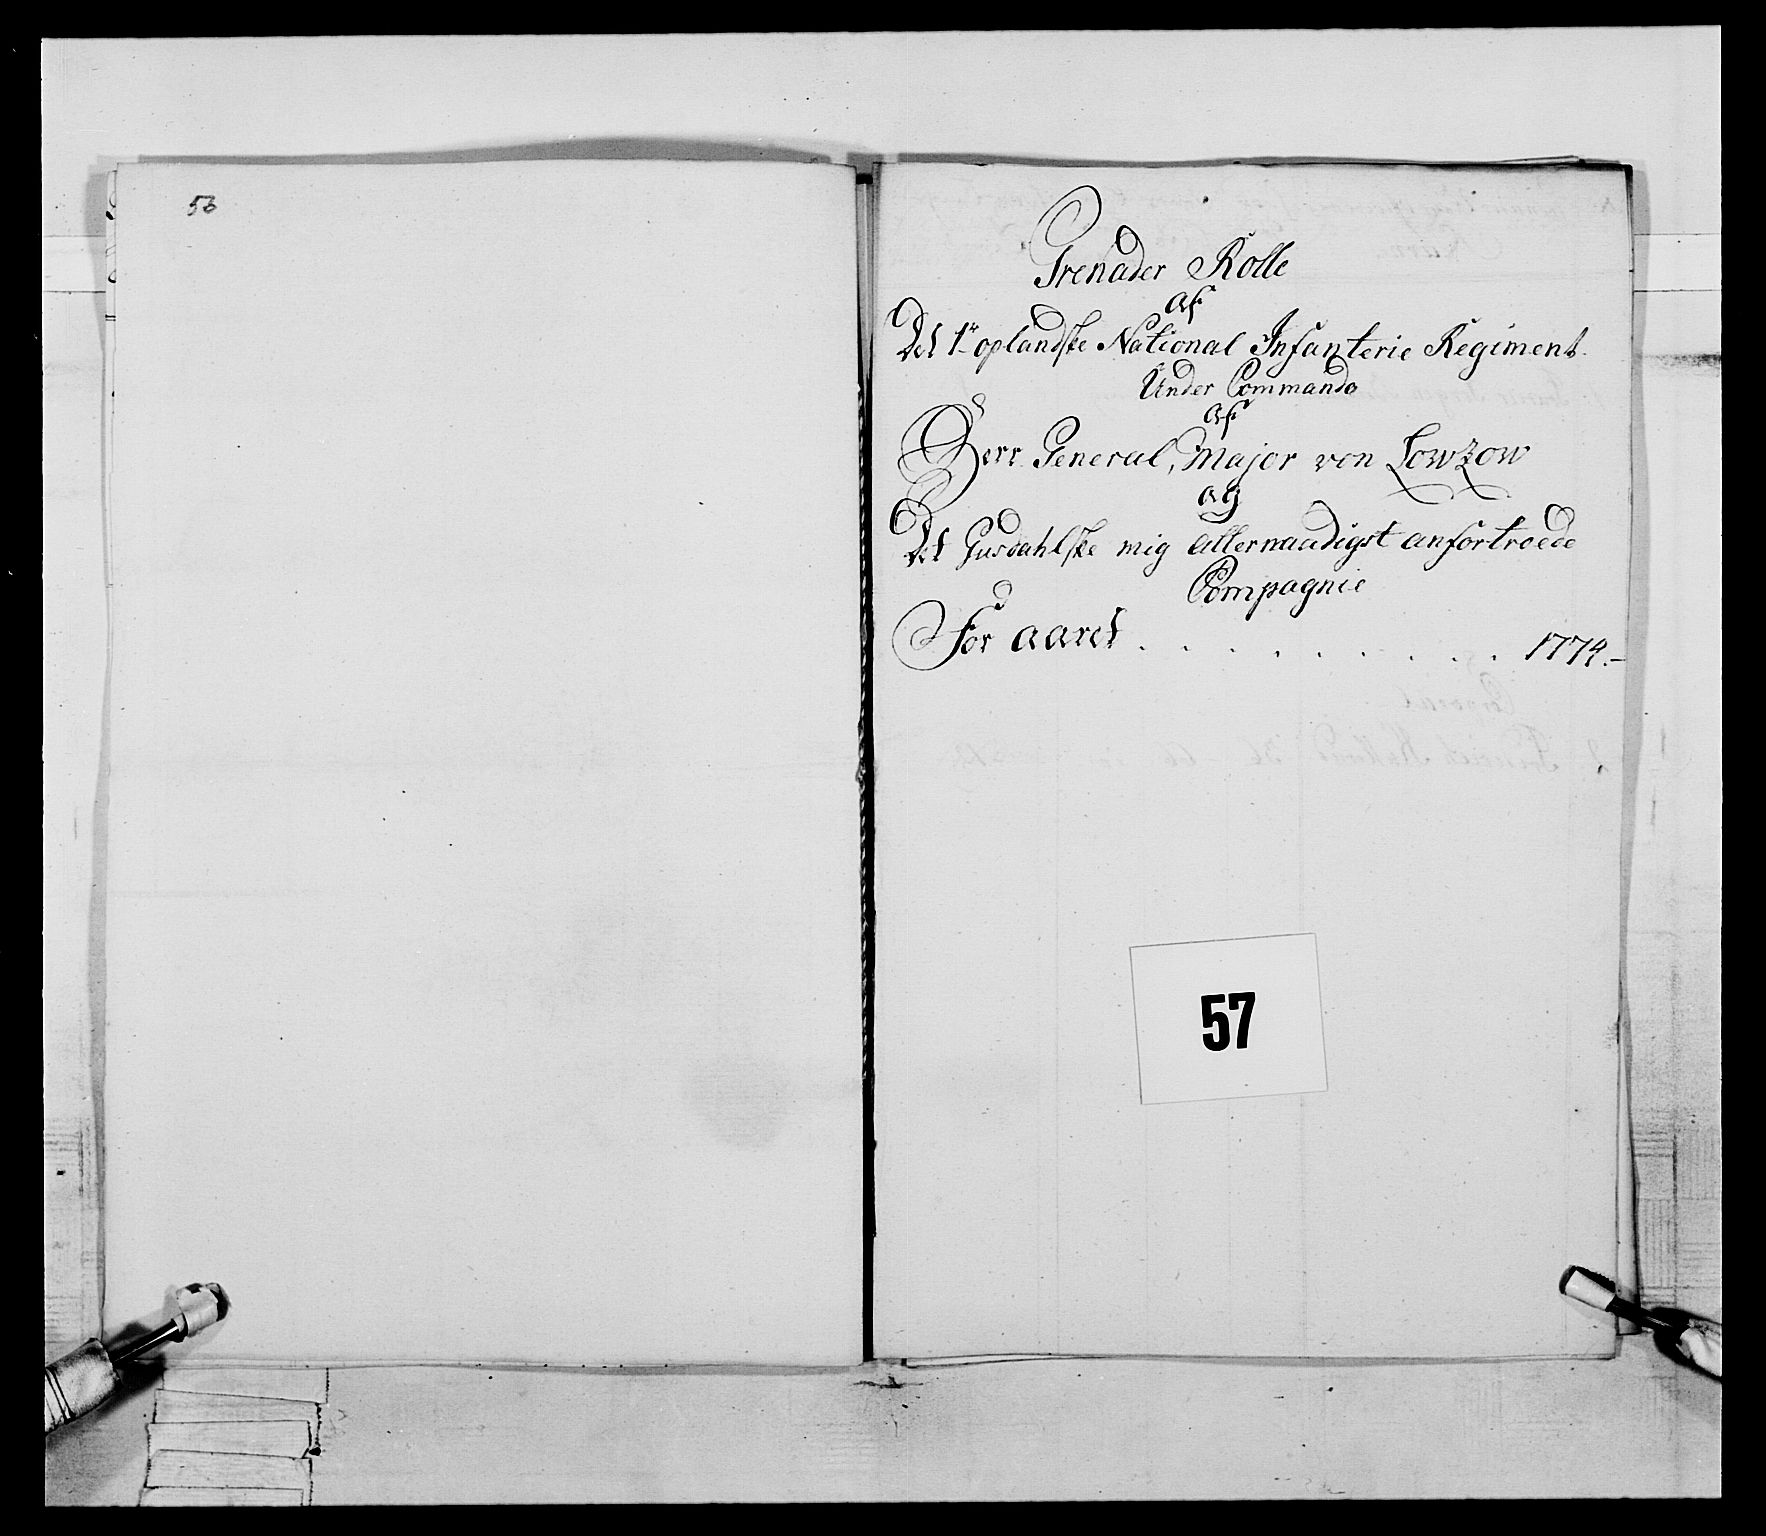 56
Grenader Rolle
af
Det 1r oplandske National Infanterie Regiment.
Under Commando
af
Herr General, Major von Lowzow
og
Det Gusdahlske mig allernaadigst anfortroede
Compagnie
For aaret . . . . . . . . . 1774.-
57